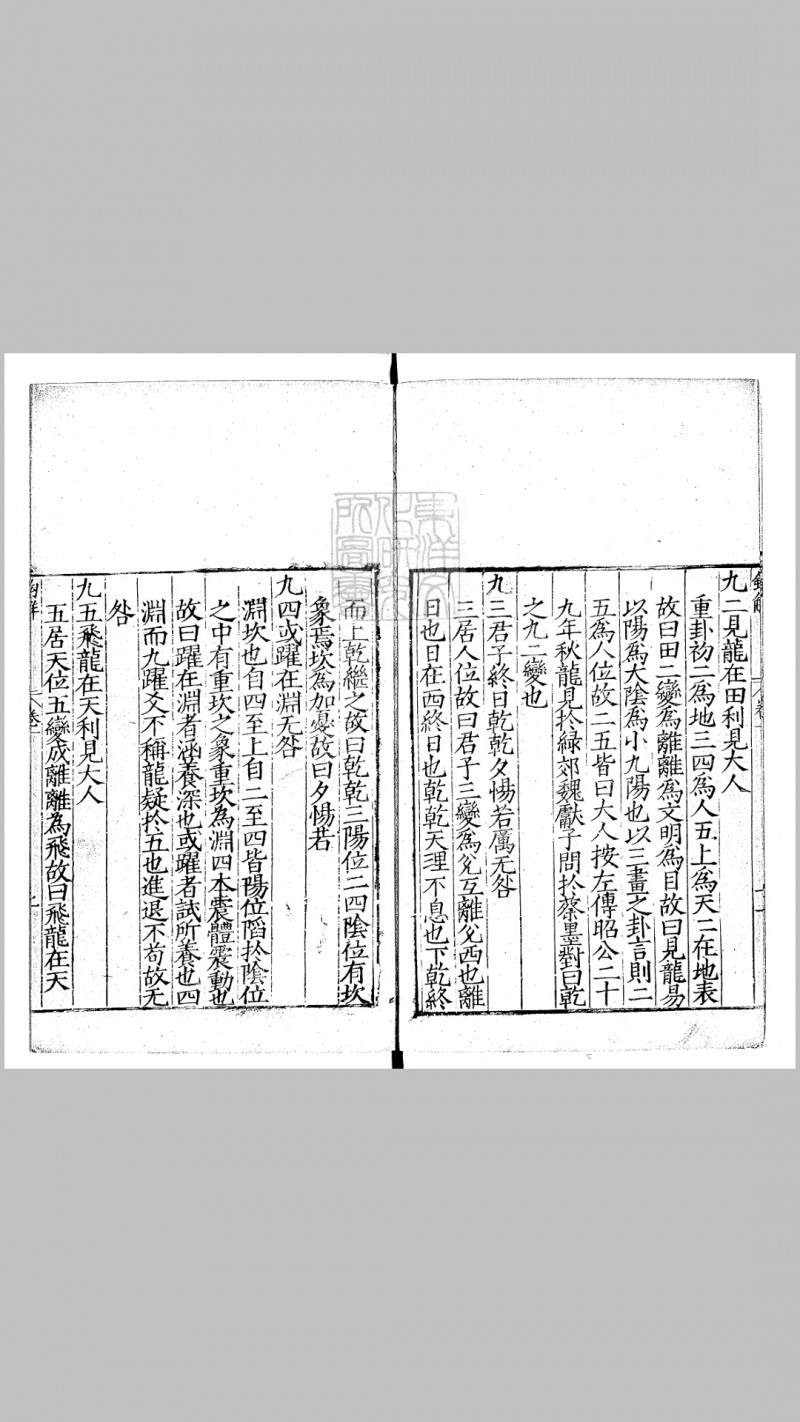 九二見龍在田利見大人
重卦初二為地三四為人五上為天二在地表
故曰田二變為離離為文明為目故曰見龍易
以陽為大陰為小九陽也以三畫之卦言則二
五為人位故二五皆曰大人按左傳昭公二十
九年秋龍見於絳郊魏獻子問於蔡墨對曰乾
之九二變也
九三君子終日乾乾夕惕若厲无咎
三居人位故曰君子三變為兌互離兌西也離
日也日在西終日也乾乾天理不息也下乾終
而上乾繼之故曰乾乾三陽位二四陰位有坎
象焉坎為加憂故曰夕惕若
九四或躍在淵无咎
淵坎也自四至上自二至四皆陽位陷於陰位
之中有重坎之象重坎為淵四本震體震動也
故曰躍在淵者涵養深也或躍者試所養也四
淵而九躍爻不稱龍疑於五也進退不苟故无
咎
九五飛龍在天利見大人
五居天位五變成離離為飛故曰飛龍在天